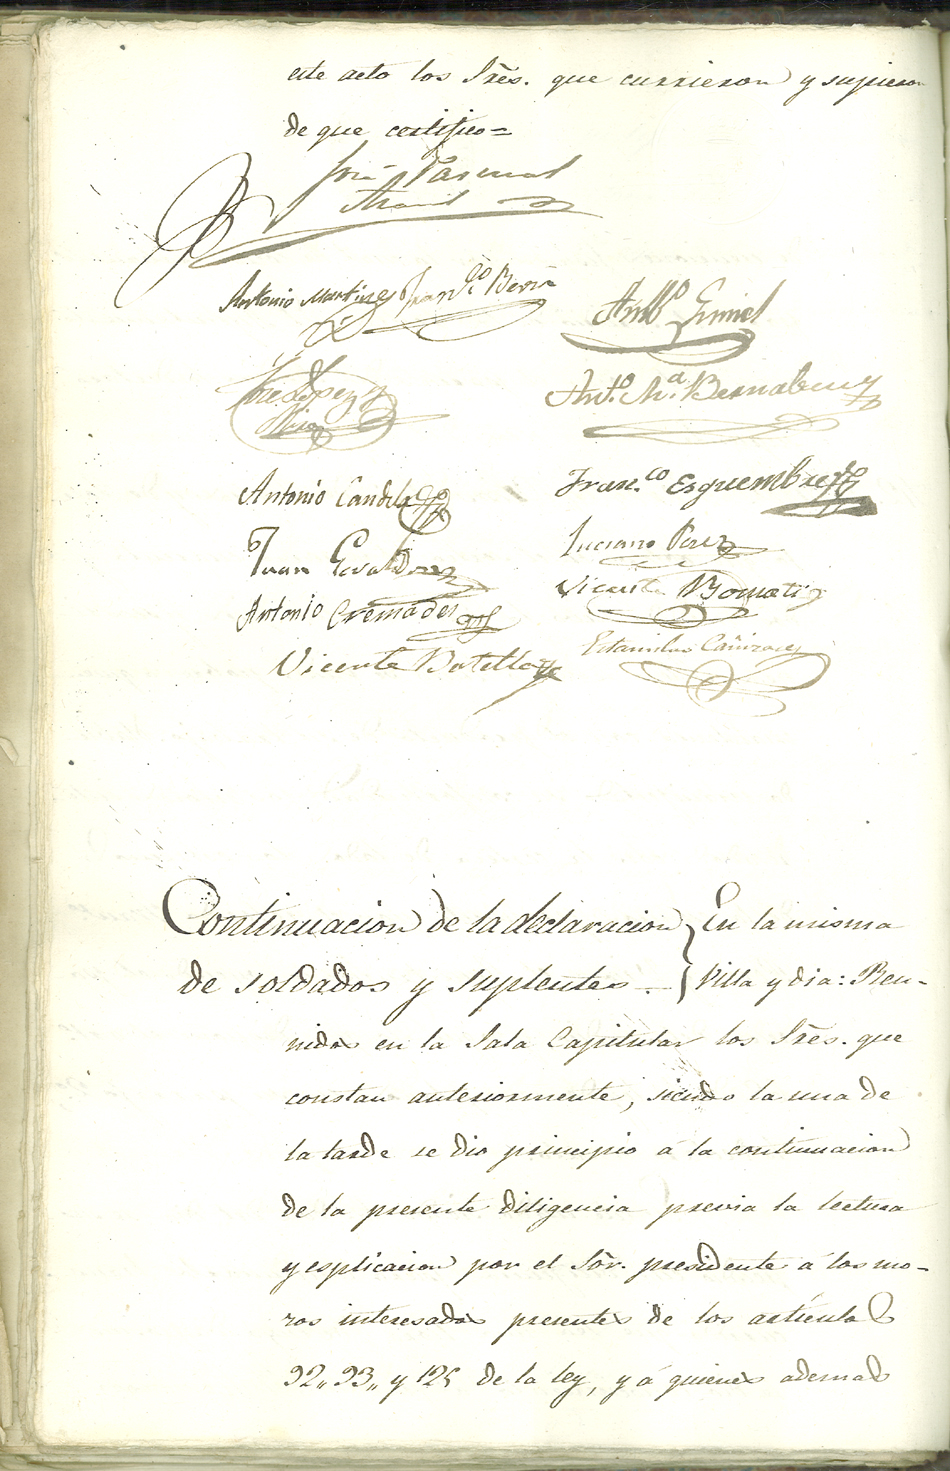 este acto los Sres. que currieron y supieron
de que certifico=
José Pascual
Antonio Martinez Franco.
Ambo.
José Lopez
Anto. Ma. Bernabeu
Antonio Candela
Franco. Esquembre
Juan
Luciano Perez
Vicente
Antonio Cremades
Estanislao Cañizares
Vicente Botella
Continuacion de la declaracion } En la misma
de soldados y suplentes. } Villa y dia: Reu-
nidos en la Sala Capitular los Sres. que
constan anteriormente, siendo la una de
la tarde se dio principio á la continuacion
de la presente diligencia previa la lectura
y esplicacion por el Sor. presidente á los mo-
zos interesados presentes de los articulos
92,, 93,, y 125 de la ley, y á quienes ademas